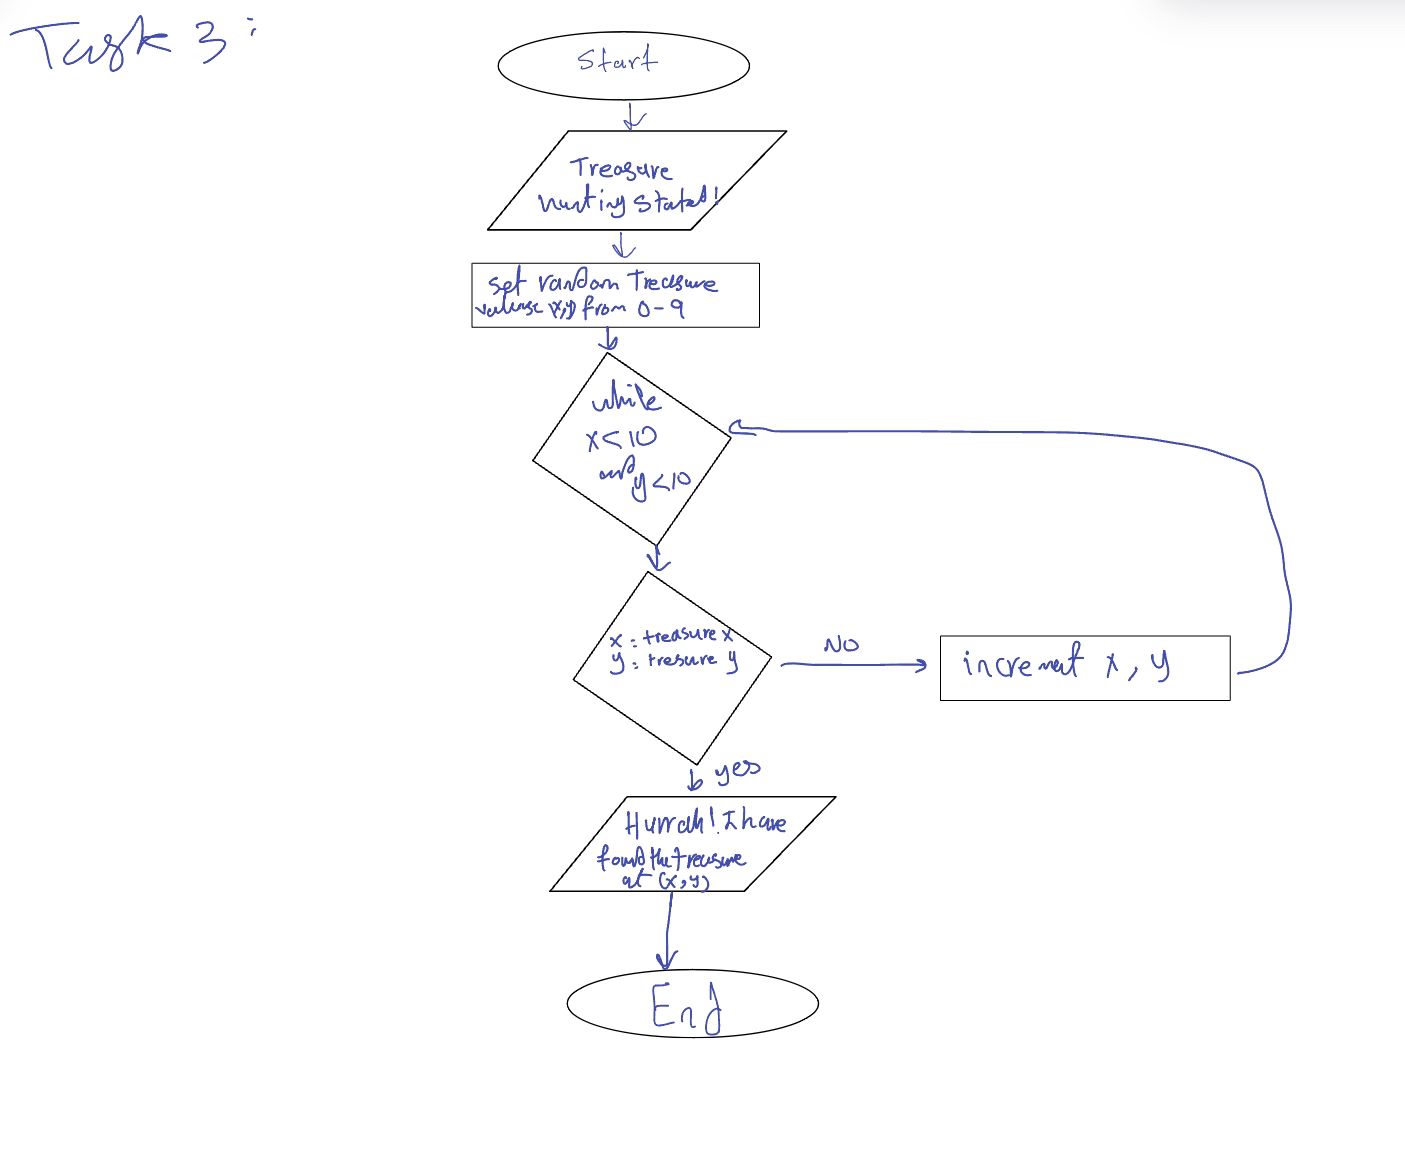 Task 3:
Start
Treasure
hunting stated!
set random Treasure
x,y from 0-9
while
x<10
and
y<10
x = treasure x
y = tresure y
NO
increment x, y
yes
Hurrah! I have
found the treasure
at (x,y)
End